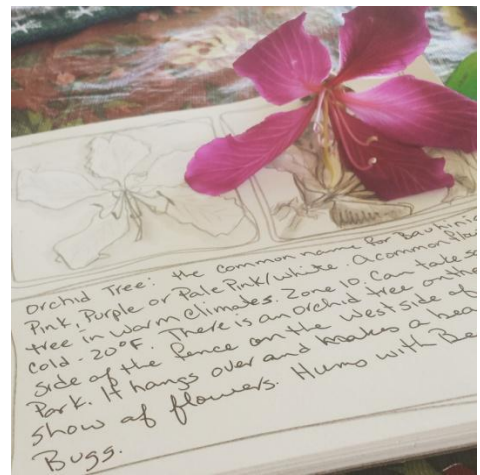 Orchid Tree: the common name for Bauhinia
Pink, Purple or Pale Pink/white. A common
tree in warm climates. Zone 10. Can take
cold - 20°F. There is an orchid tree on the
side of the fence on the west side of
Park. It hangs over and makes a
show of flowers. Hums with
Bugs.